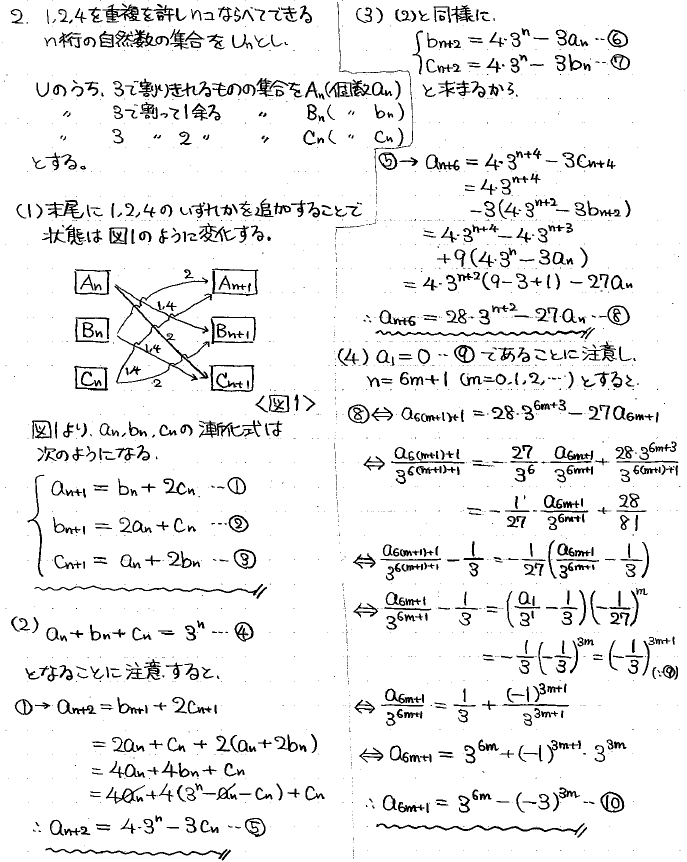 2. 1,2,4を重複を許しnコならべてできる
n桁の自然数の集合をUnとし、
Uのうち、3で割りきれるものの集合をAn(個数an)
〃 3で割って1余る 〃 Bn(〃 bn)
〃 3 〃 2 〃 〃 Cn(〃 Cn)
とする。
(1) 末尾に1,2,4のいずれかを追加することで
状態は図1のように変化する。
An 2 An+1
1,4
Bn 2 Bn+1
1,4
Cn 1,4 2 Cn+1
<図1>
図1より、an,bn,cnの漸化式は
次のようになる。
an+1 = bn + 2cn …①
bn+1 = 2an + cn …②
cn+1 = an + 2bn …③
(2) an + bn + cn = 3^n …④
となることに注意すると、
①→ an+2 = bn+1 + 2cn+1
= 2an + cn + 2(an + 2bn)
= 4an + 4bn + cn
= 4an + 4(3^n − an − cn) + cn
∴ an+2 = 4・3^n − 3cn …⑤
(3) (2)と同様に、
bn+2 = 4・3^n − 3an …⑥
cn+2 = 4・3^n − 3bn …⑦
と来まるから、
⑤→ an+6 = 4・3^{n+4} − 3cn+4
= 4・3^{n+4}
−3(4・3^{n+2} − 3bn+2)
= 4・3^{n+4} − 4・3^{n+3}
+9(4・3^n − 3an)
= 4・3^{n+2}(9−3+1) − 27an
∴ an+6 = 28・3^{n+2} − 27an …⑧
(4) a1 = 0 …⑨ であることに注意し、
n=6m+1 (m=0,1,2,…)とすると、
⑧⇔ a6(m+1)+1 = 28・3^{6m+3} − 27a6m+1
⇔ a6(m+1)+1/3^{6(m+1)+1} = −27/3^6・a6m+1/3^{6m+1} + 28・3^{6m+3}/3^{6(m+1)+1}
= −1/27・a6m+1/3^{6m+1} + 28/81
⇔ a6(m+1)+1/3^{6(m+1)+1} − 1/3 = −1/27(a6m+1/3^{6m+1} − 1/3)
⇔ a6m+1/3^{6m+1} − 1/3 = (a1/3^1 − 1/3)(−1/27)^m
= −1/3(−1/3)^{3m} = (−1/3)^{3m+1} (∵⑨)
⇔ a6m+1/3^{6m+1} = 1/3 + (−1)^{3m+1}/3^{3m+1}
⇔ a6m+1 = 3^{6m} + (−1)^{3m+1}・3^{3m}
∴ a6m+1 = 3^{6m} − (−3)^{3m} …⑩